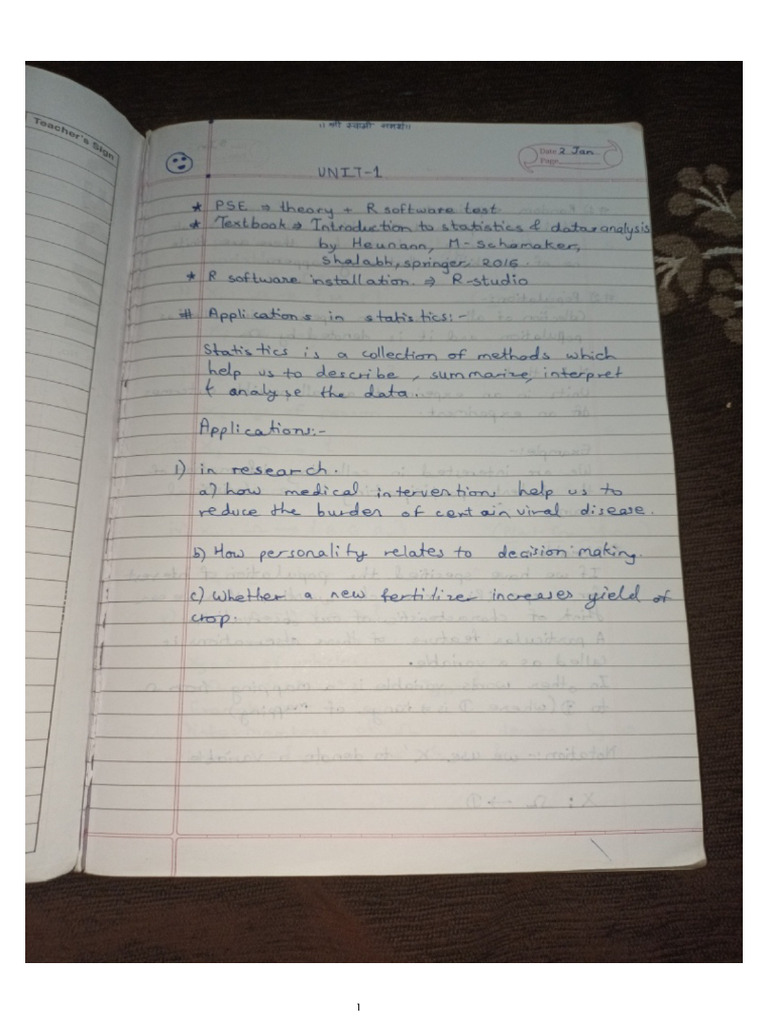 Teacher's Sign
॥ श्री स्वामी समर्थ ॥
Date 2 Jan
Page
UNIT-1
* PSE ⇒ theory + R software test
* Textbook ⇒ Introduction to statistics & data analysis
by Heunann, M-schomaker,
Shalabh, springer, 2016
* R software installation. ⇒ R-studio
# Applications in statistics:-
Statistics is a collection of methods which
help us to describe, summarize, interpret
& analyse the data.
Applications:-
1) in research.
a) how medical intervention help us to
reduce the burden of certain viral disease.
b) How personality relates to decision making.
c) Whether a new fertilizer increases yield of
crop.
1